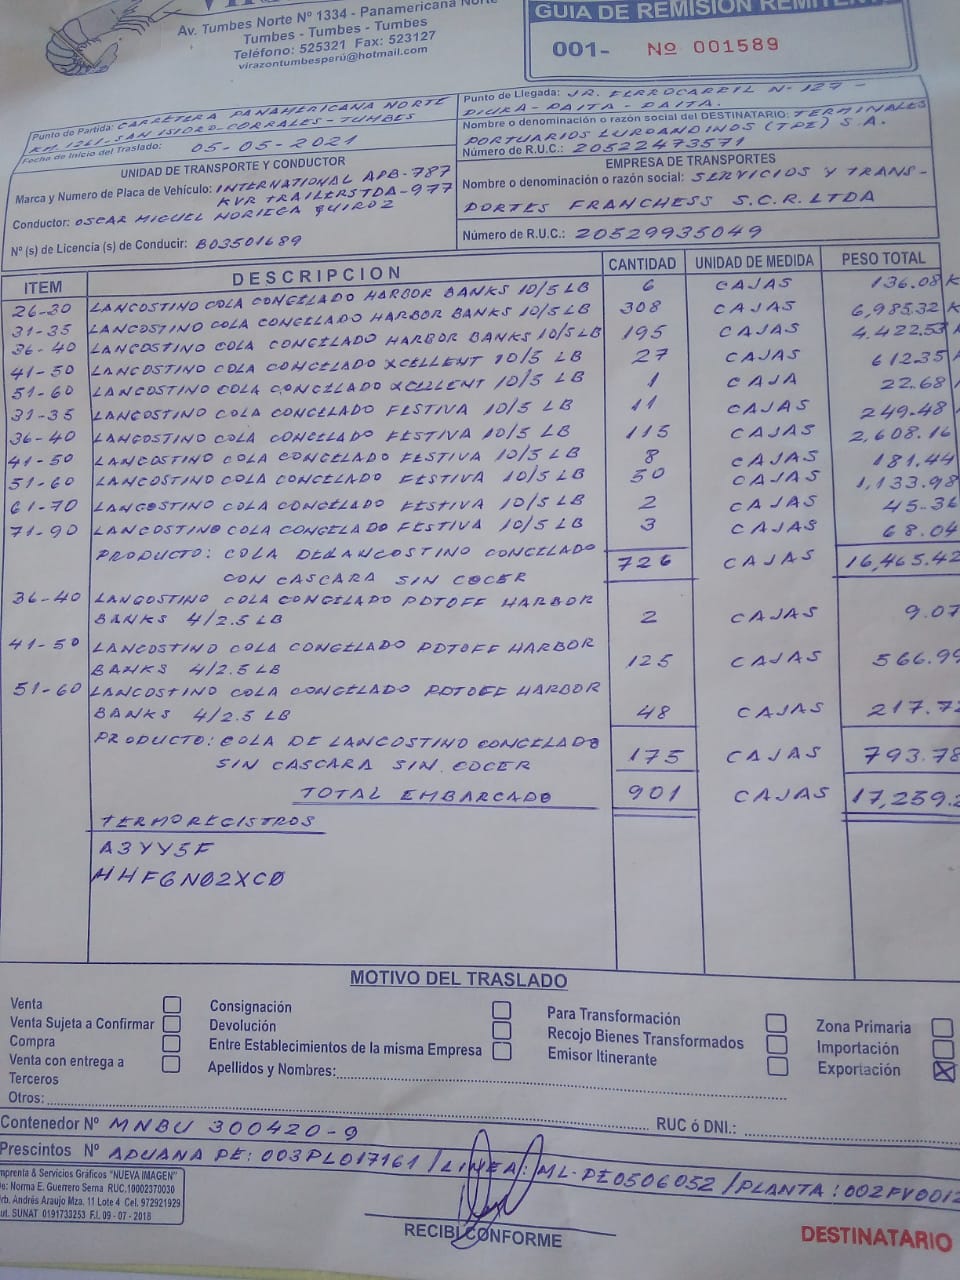 Av. Tumbes Norte Nº 1334 - Panamericana Norte
Tumbes - Tumbes - Tumbes
Teléfono: 525321 Fax: 523127
virazontumbesperú@hotmail.com
GUIA DE REMISIÓN REMITENTE
001- Nº 001589
Punto de Partida: CARRETERA PANAMERICANA NORTE
KM. 1261-SAN ISIDRO-CORRALES-TUMBES
Fecha de Inicio del Traslado: 05-05-2021
Punto de Llegada: JR. FERROCARRIL Nº 127 -
PIURA-PAITA-PAITA.
Nombre o denominación o razón social del DESTINATARIO: TERMINALES
PORTUARIOS EUROANDINOS (TPE) S.A.
Número de R.U.C.: 20522473571
UNIDAD DE TRANSPORTE Y CONDUCTOR
Marca y Numero de Placa de Vehículo: INTERNATIONAL APB-787
KVR TRAILERS TDA-977
Conductor: OSCAR MIGUEL NORIEGA QUIROZ
Nº (s) de Licencia (s) de Conducir: B03501689
EMPRESA DE TRANSPORTES
Nombre o denominación o razón social: SERVICIOS Y TRANS-
PORTES FRANCHESS S.C.R. LTDA
Número de R.U.C.: 20529935049
ITEM DESCRIPCION CANTIDAD UNIDAD DE MEDIDA PESO TOTAL
26-30 LANGOSTINO COLA CONGELADO HARBOR BANKS 10/5 LB 6 CAJAS 136.08 K
31-35 LANGOSTINO COLA CONGELADO HARBOR BANKS 10/5 LB 308 CAJAS 6,985.32 K
36-40 LANGOSTINO COLA CONGELADO HARBOR BANKS 10/5 LB 195 CAJAS 4,422.53
41-50 LANGOSTINO COLA CONGELADO XCELLENT 10/5 LB 27 CAJAS 612.35
51-60 LANGOSTINO COLA CONGELADO XCELLENT 10/5 LB 1 CAJA 22.68
31-35 LANGOSTINO COLA CONGELADO FESTIVA 10/5 LB 11 CAJAS 249.48
36-40 LANGOSTINO COLA CONGELADO FESTIVA 10/5 LB 115 CAJAS 2,608.16
41-50 LANGOSTINO COLA CONGELADO FESTIVA 10/5 LB 8 CAJAS 181.44
51-60 LANGOSTINO COLA CONGELADO FESTIVA 10/5 LB 50 CAJAS 1,133.98
61-70 LANGOSTINO COLA CONGELADO FESTIVA 10/5 LB 2 CAJAS 45.36
71-90 LANGOSTINO COLA CONGELADO FESTIVA 10/5 LB 3 CAJAS 68.04
PRODUCTO: COLA DE LANGOSTINO CONGELADO 726 CAJAS 16,465.42
CON CASCARA SIN COCER
36-40 LANGOSTINO COLA CONGELADO PDTOFF HARBOR
BANKS 4/2.5 LB 2 CAJAS 9.07
41-50 LANGOSTINO COLA CONGELADO PDTOFF HARBOR
BANKS 4/2.5 LB 125 CAJAS 566.99
51-60 LANGOSTINO COLA CONGELADO PDTOFF HARBOR
BANKS 4/2.5 LB 48 CAJAS 217.72
PRODUCTO: COLA DE LANGOSTINO CONGELADO 175 CAJAS 793.78
SIN CASCARA SIN COCER
TOTAL EMBARCADO 901 CAJAS 17,259.2
TERMOREGISTROS
A3YY5F
HHF6N02XC0
MOTIVO DEL TRASLADO
Venta
Venta Sujeta a Confirmar
Compra
Venta con entrega a
Terceros
Otros:
Consignación
Devolución
Entre Establecimientos de la misma Empresa
Apellidos y Nombres:
Para Transformación
Recojo Bienes Transformados
Emisor Itinerante
Zona Primaria
Importación
Exportación X
RUC ó DNI.:
Contenedor Nº MNBU 300420-9
Prescintos Nº ADUANA PE: 003PL017161 / LINEA: ML-PE0506052 / PLANTA: 002FV0012
Imprenta & Servicios Gráficos "NUEVA IMAGEN"
de: Norma E. Guerrero Serna RUC.10002370030
Urb. Andrés Araujo Mza. 11 Lote 4 Cel. 972921929
Aut. SUNAT 0191733253 F.I. 09 - 07 - 2018
RECIBI CONFORME
DESTINATARIO